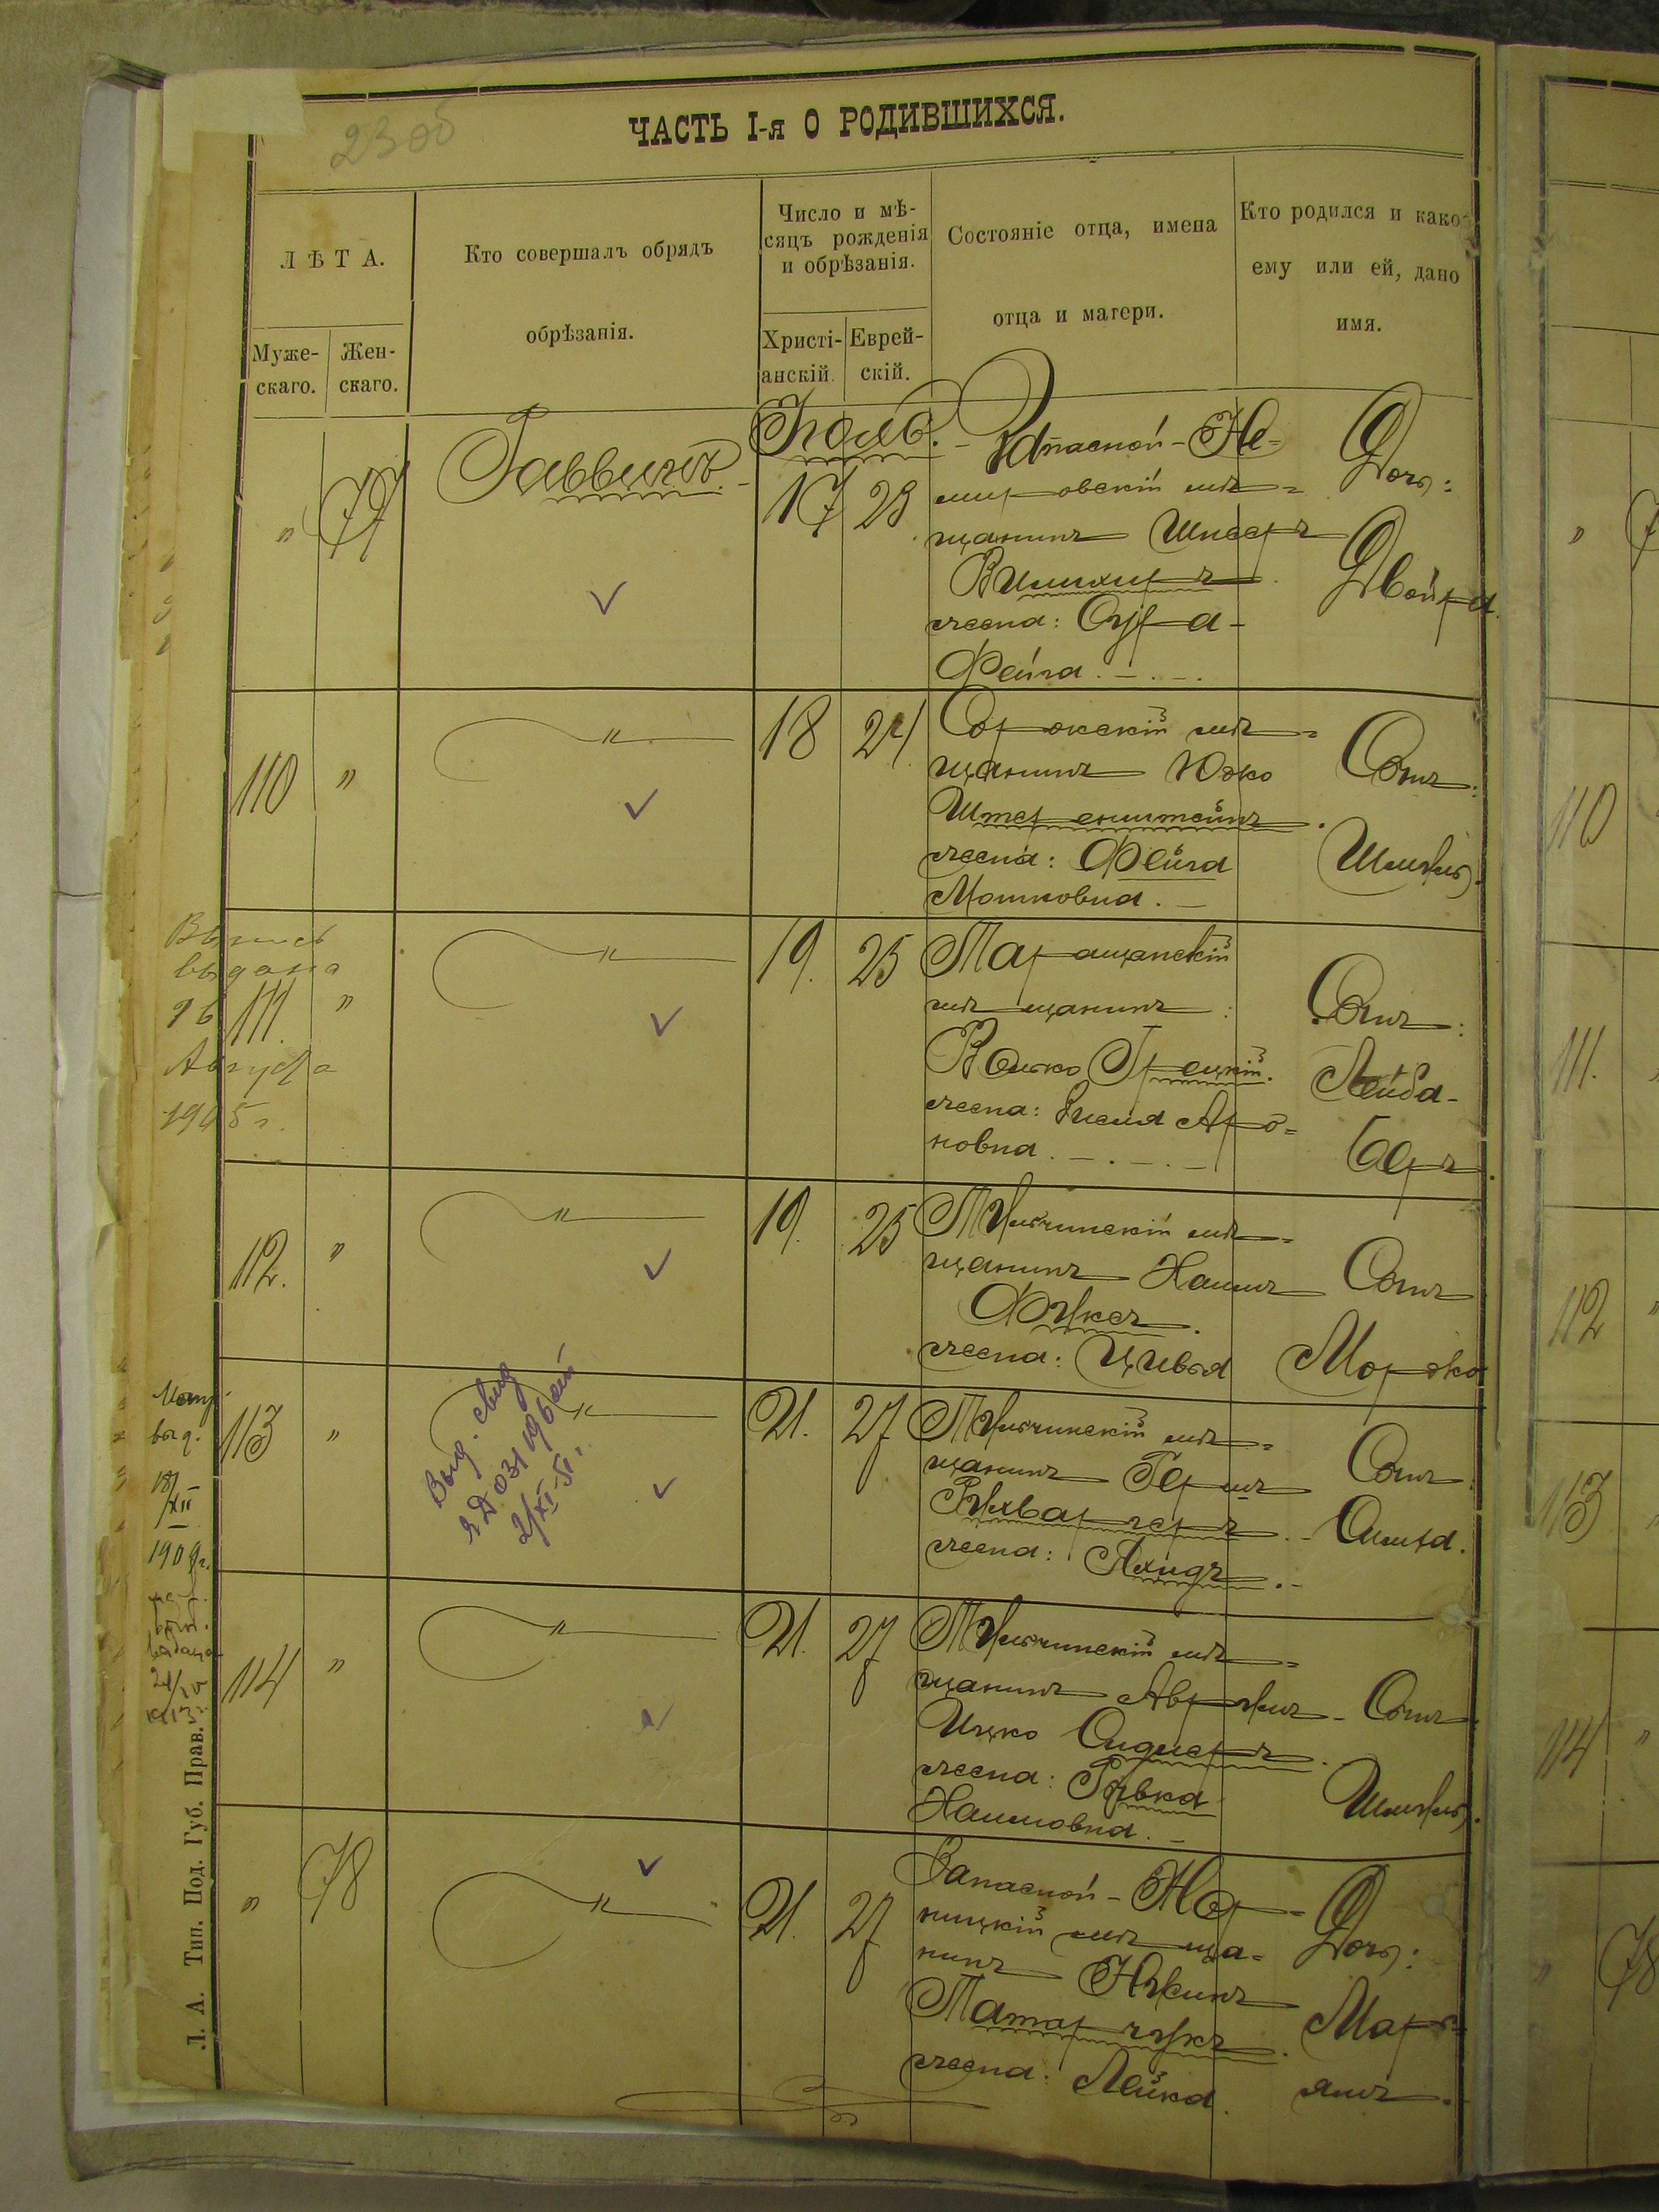 23 об
ЧАСТЬ I-я О РОДИВШИХСЯ.
ЛѢТА.
Муже-
скаго.
Жен-
скаго.
Кто совершалъ обрядъ
обрѣзанія.
Число и мѣ-
сяцъ рожденія
и обрѣзанія.
Христі-
анскій.
Еврей-
скій.
Состояніе отца, имена
отца и матери.
Кто родился и како-
ему или ей, дано
имя.
" 77
Раввинъ.
Іюль.
17 23
Запасной - Не-
мировскій мѣ-
щанинъ Шнеєръ
жена: Сура-
Фейга.
Дочь:
Двойра.
110 "
"
18 24
Сорокскій мѣ-
щанинъ Юзко
Штеренштейнъ.
жена: Фейга
Мошковна.
Сынъ:
Шмуль.
111. "
"
19. 25
Таращанскій
мѣщанинъ:
Волько Грецкій.
жена: Рися Аро-
новна.
Сынъ:
Лейба-
Беръ.
112. "
"
19. 25
Тульчинскій мѣ-
щанинъ Наимъ
Фуксъ.
жена: Цивья
Сынъ
Моржко
113 "
"
21. 27
Тульчинскій мѣ-
щанинъ Гершъ
жена:
Сынъ.
114 "
"
21. 27
Тульчинскій мѣ-
щанинъ Аврумъ-
Ицко
жена: Ривка
Наимовна.
Сынъ.
Шмуль.
" 78
"
21. 27
Запасной - Жор-
ницкій мѣща-
нинъ Нухинъ
Татарчукъ.
жена: Лейка.
Дочь:
Марь-
ямъ.
Выпись
выдана
16
Августа
1905 г.
выд.
18/XII
1909 г.
выдана
Выд. свид
2/XI-51 г.
Л. А. Тип. Под. Губ. Прав.
" 7
110
111.
112 "
113
114 "
" 78